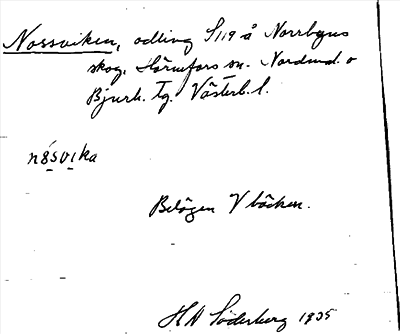 Nossviken, odling S119 å Norrbyns
skog. Hörnefors sn. Nordmal. o
Bjurh. tg. Västerb. l.
nåsvika
Belägen V bäcken.
H N Söderberg 1935